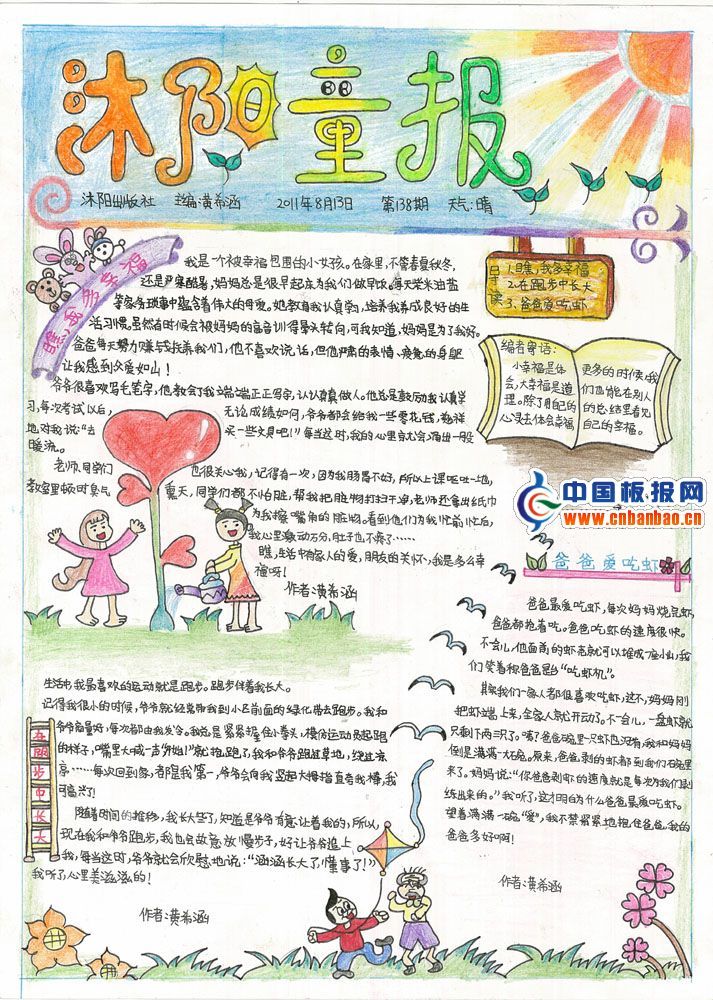 沐阳童报
沐阳出版社 主编:黄希涵 2011年8月13日 第138期 天气:晴
瞧,我多幸福
我是一个被幸福包围的小女孩。在家里,不管春夏秋冬,
还是严寒酷暑,妈妈总是很早起来为我们做早饭。每天柴米油盐
等家务琐事中蕴含着伟大的母爱。她教育我认真学习,培养我养成良好的生
活习惯。虽然有时候会被妈妈的高音训得晕头转向,可我知道,妈妈是为了我好。
爸爸每天努力赚钱抚养我们,他不喜欢说话,但他严肃的表情、疲惫的身躯
让我感到父爱如山!
爷爷很喜欢写毛笔字,他教会了我端端正正写字,认认真真做人。他总是鼓励我认真学
习,每次考试以后, 无论成绩如何,爷爷都会给我一些零花钱,慈祥
地对我说:“去 买一些文具吧!”每当这时,我的心里就会涌出一股
暖流。
老师、同学们 也很关心我,记得有一次,因为我肠胃不好,所以上课呕吐一地,
教室里顿时臭气 熏天,同学们都不怕脏,帮我把脏物打扫干净,老师还拿出纸巾
为我擦嘴角的脏物。看到他们为我忙前忙后,
我心里激动万分,肚子也不疼了……
瞧,生活中有家人的爱,朋友的关怀,我是多么幸
福呀!
作者:黄希涵
导读
1.瞧,我多幸福
2.在跑步中长大
3、爸爸爱吃虾
编者寄语:
小幸福是体
会,大幸福是道
理。除了用自己的
心灵去体会幸福
更多的时候,我
们也能在别人
的总结里看见
自己的幸福。
中国板报网
www.cnbanbao.cn
爸爸爱吃虾
爸爸最爱吃虾,每次妈妈烧完虾,
爸爸都抢着吃。爸爸吃虾的速度很快。
不会儿,他面前的虾壳就可以堆成一座小山,我
们笑着称爸爸是“吃虾机”。
其实我们一家人都很喜欢吃虾,这不,妈妈刚
把虾端上来,全家人就开动了。不一会儿,一盘虾就
只剩下两三只了。咦?爸爸碗里一只虾也没有,我和妈妈
倒是满满一大碗。原来,爸爸剥的虾都到我们碗里
来了。妈妈说:“你爸爸剥虾的速度就是每次为我们剥
练出来的。”我听了,这才明白为什么爸爸最爱吃虾。
望着满满一碗“爱”,我不禁紧紧地抱住爸爸,我的
爸爸多好啊!
作者:黄希涵
在跑步中长大
生活中,我最喜欢的运动就是跑步。跑步伴着我长大。
记得我很小的时候,爷爷就经常带我到小区前面的绿化带去跑步。我和
爷爷商量好,每次都由我发令。我总是紧紧握住小拳头,模仿运动员起跑
的样子,嘴里大喊一声“开始!”就抢跑了,我和爷爷跑过草地,绕过凉
亭……每次回到家,都是我第一,爷爷会向我竖起大拇指直夸我棒,我
可高兴了!
随着时间的推移,我长大些了,知道是爷爷有意让着我的,所以,
现在我和爷爷跑步,我也会故意放慢步子,好让爷爷追上
我,每当这时,爷爷就会欣慰地说:“涵涵长大了!懂事了!”
我听了心里美滋滋的!
作者:黄希涵